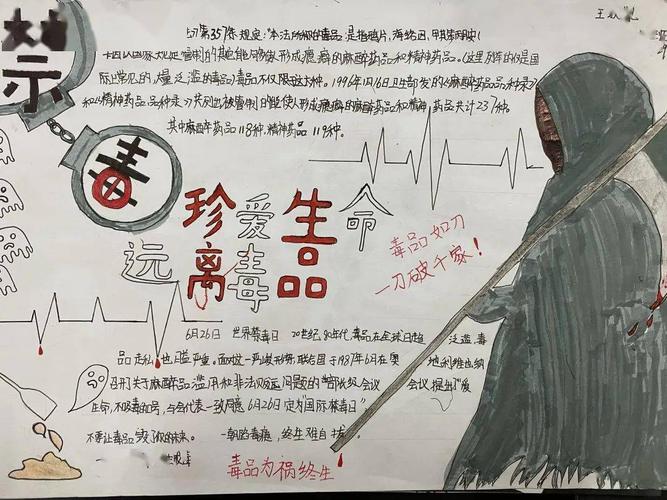 王
禁
毒
第357条规定:"本法所称的毒品,是指鸦片,海洛因,甲基苯丙胺(
国家规定管制的其它能够使人形成瘾癖的麻醉药品和精神药品。(这里列举的仅是国
际上常见的,大量泛滥的)毒品不仅限这六种。1996年1月16日卫生部发的《麻醉药品品种表》
和《精神药品品种表》共列出被管制的能使人形成瘾癖的麻醉药品和精神药品共计237种。
其中麻醉药品118种,精神药品119种。
珍爱生命
远离毒品
毒品如刀
一刀破千家!
6月26日 世界禁毒日 20世纪80年代,毒品在全球日趋泛滥,毒
品走私也日益严重。面对这一严峻形势,联合国于1987年6月在奥地利维也纳
召开关于麻醉品滥用和非法贩运问题的"部长级会议 会议提出了"爱
生命,不吸毒"的口号,与会代表一致同意6月26日定为"国际禁毒日"
不要让毒品毁了你的未来。 一朝陷毒瘾,终生难自拔。
毒品为祸终生